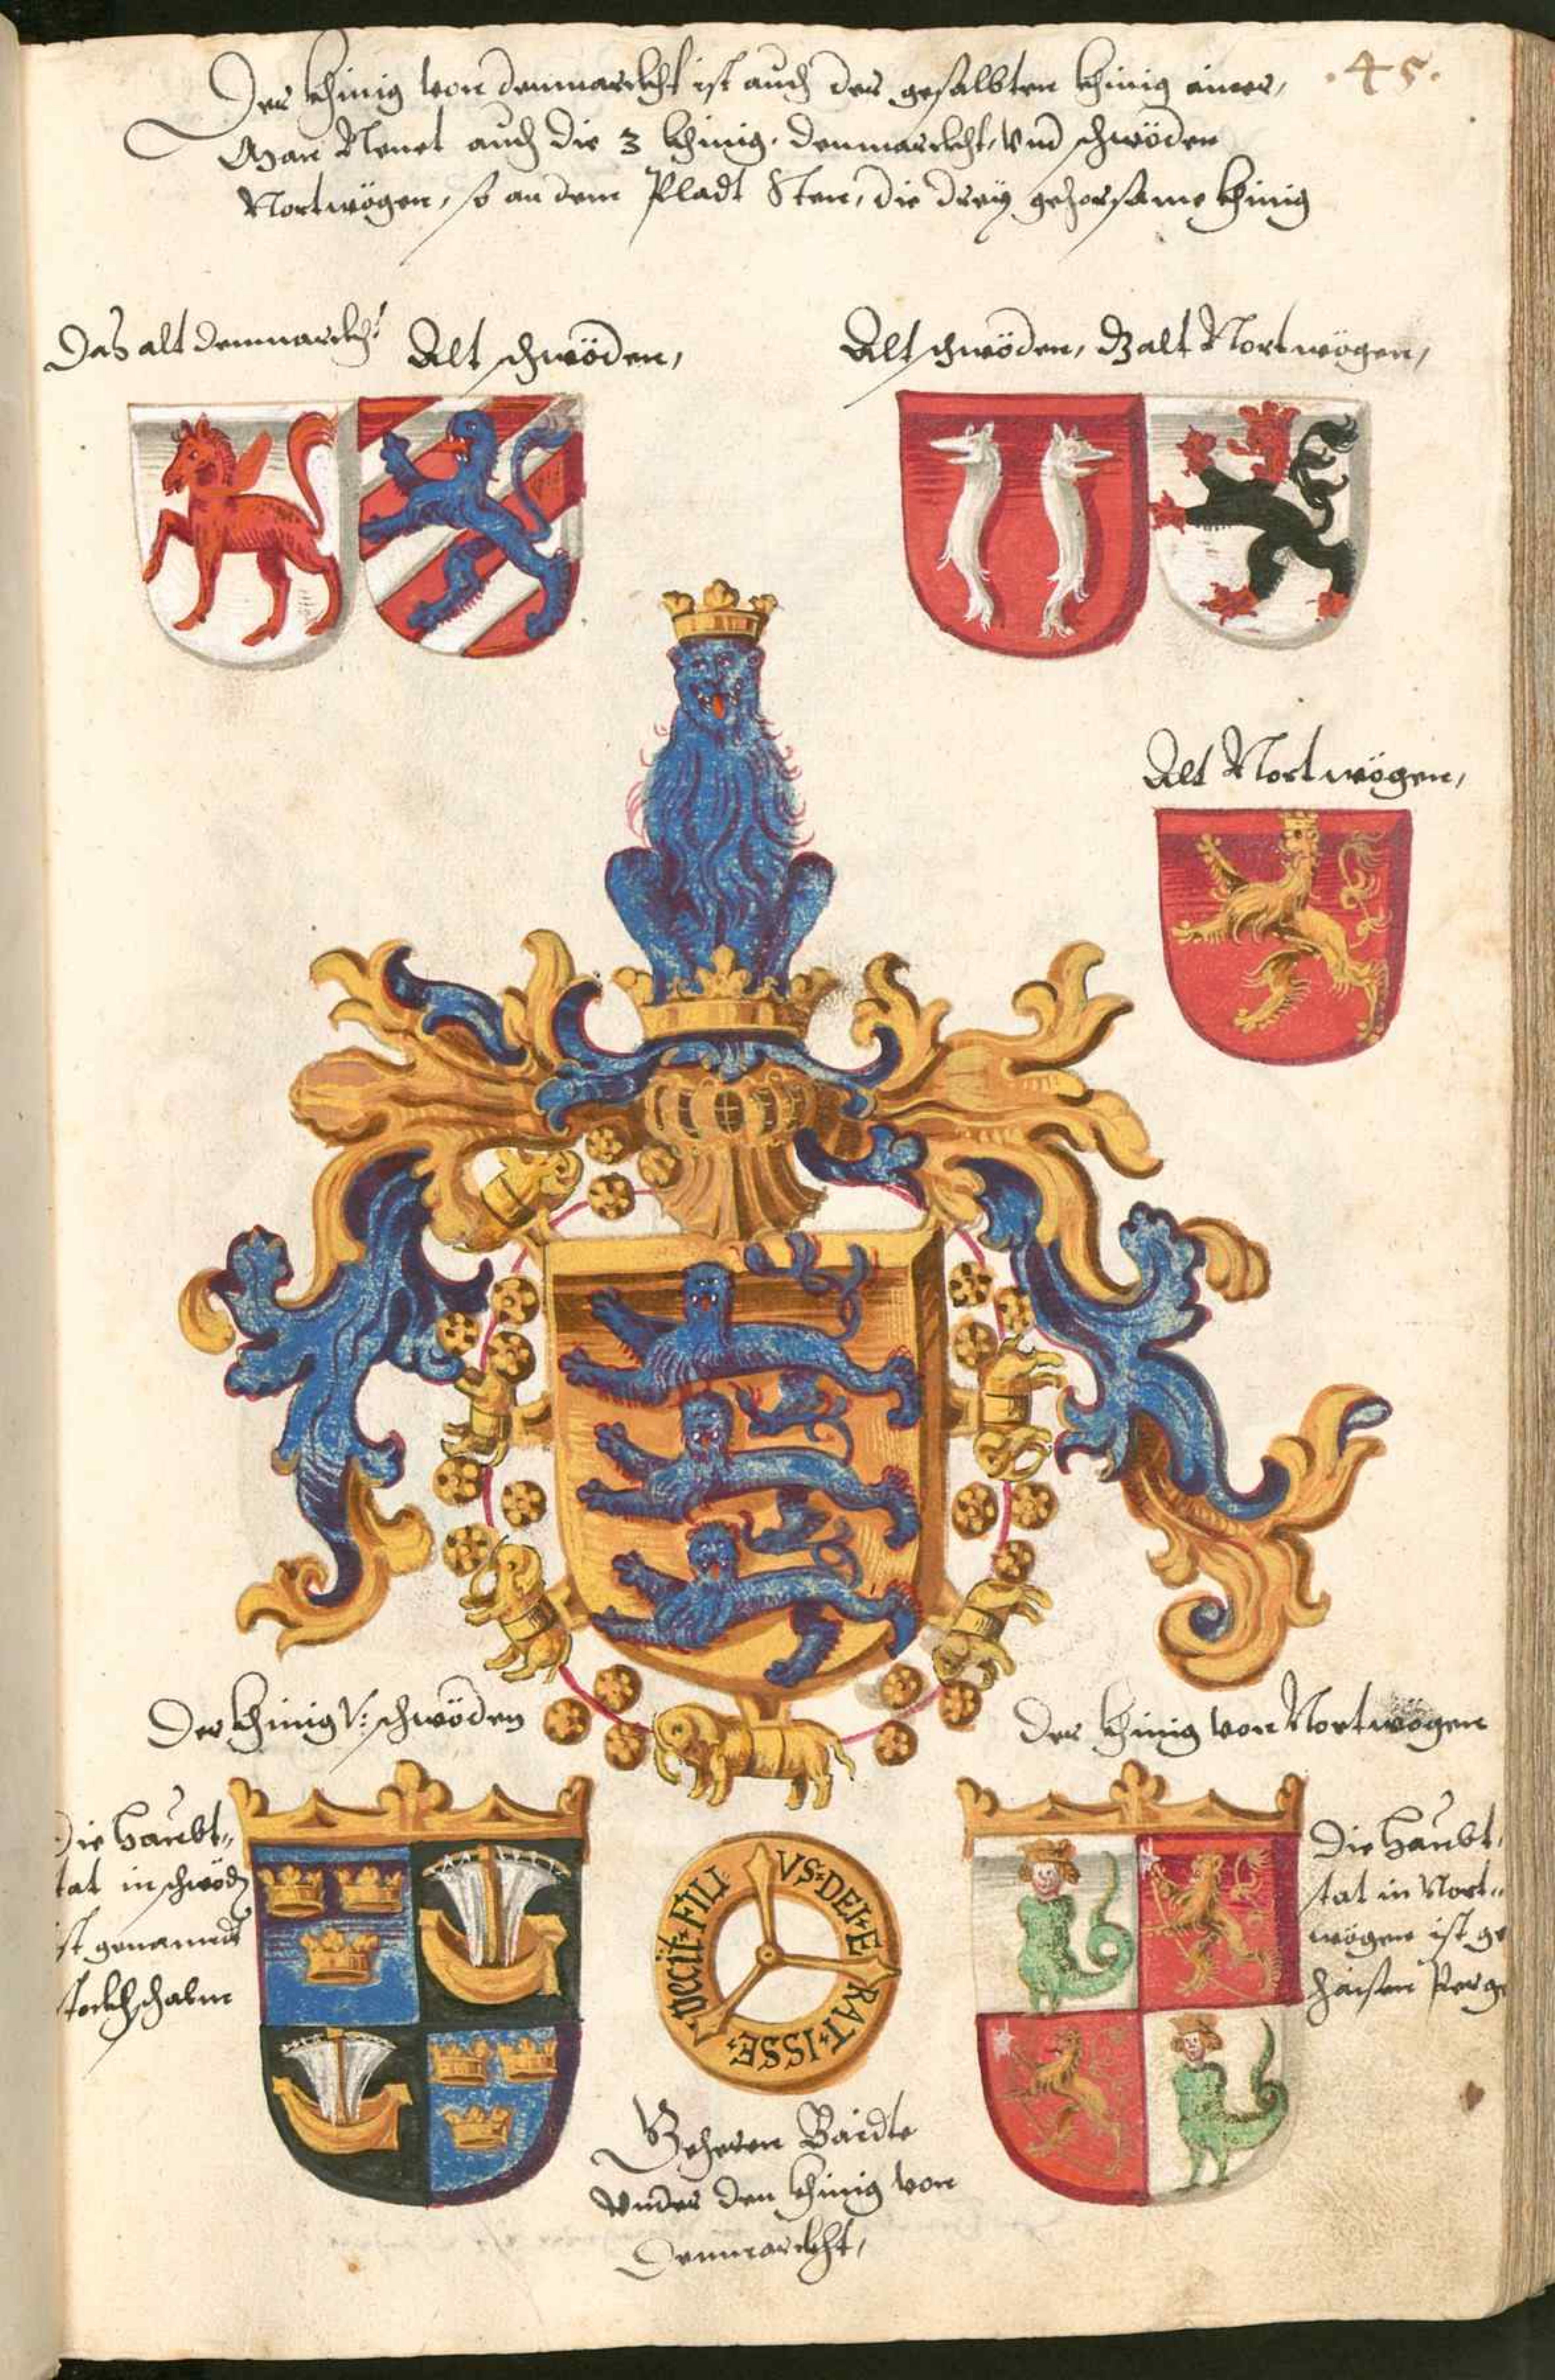 .45.
Der khinig von denmarckht ist auch der gesalbten khinig ainer,
Man Nenet auch die 3 khinig. denmarckht, vnd schwöden
Nortwögen, so an dem Pladt Sten, die dreÿ gehorsame khinig
Das alt denmarckht
Alt schwöden,
Alt schwöden, dz alt Nortwögen,
Alt Nortwögen,
Der khinig V: schwöden
Der khinig von Nortwögen
Die haubt„
tat in schwödn
ist genanndt
stockhschalm
Die haubt„
stat in Nort„
wögen ist ge
haisen Perg
VS·DEI·E
RAT·ISSE·
FILI
Geheren Baidte
vnder den khinig von
Denmarckht,